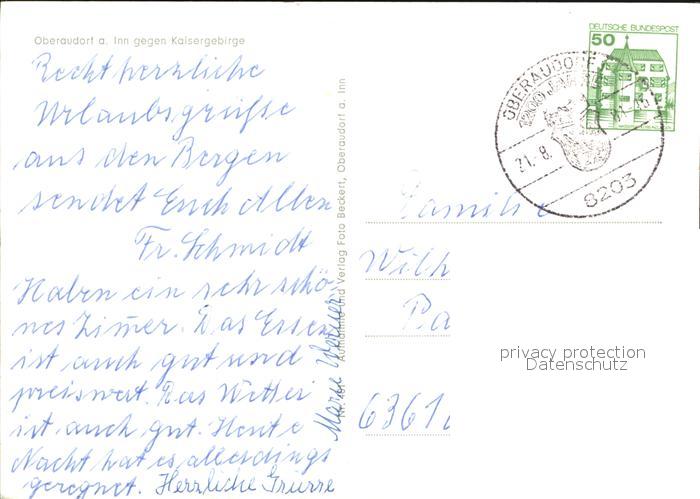 Oberaudorf a. Inn gegen Kaisergebirge
Recht herzliche
Urlaubsgrüße
aus den Bergen
sendet Euch Allen
Fr. Schmidt
Haben ein sehr schö-
nes Zimmer. Das Essen
ist auch gut und
preiswert. Das Wetter
ist auch gut. Heute
Nacht hat es allerdings
geregnet. Herzliche Grüsse
Marie
Aufnahme und Verlag Foto Beckert, Oberaudorf a. Inn
DEUTSCHE BUNDESPOST
50
OBERAUDORF
1200 JAHRE
21.-8.
8203
Familie
Wilh
Ba
6361
privacy protection
Datenschutz